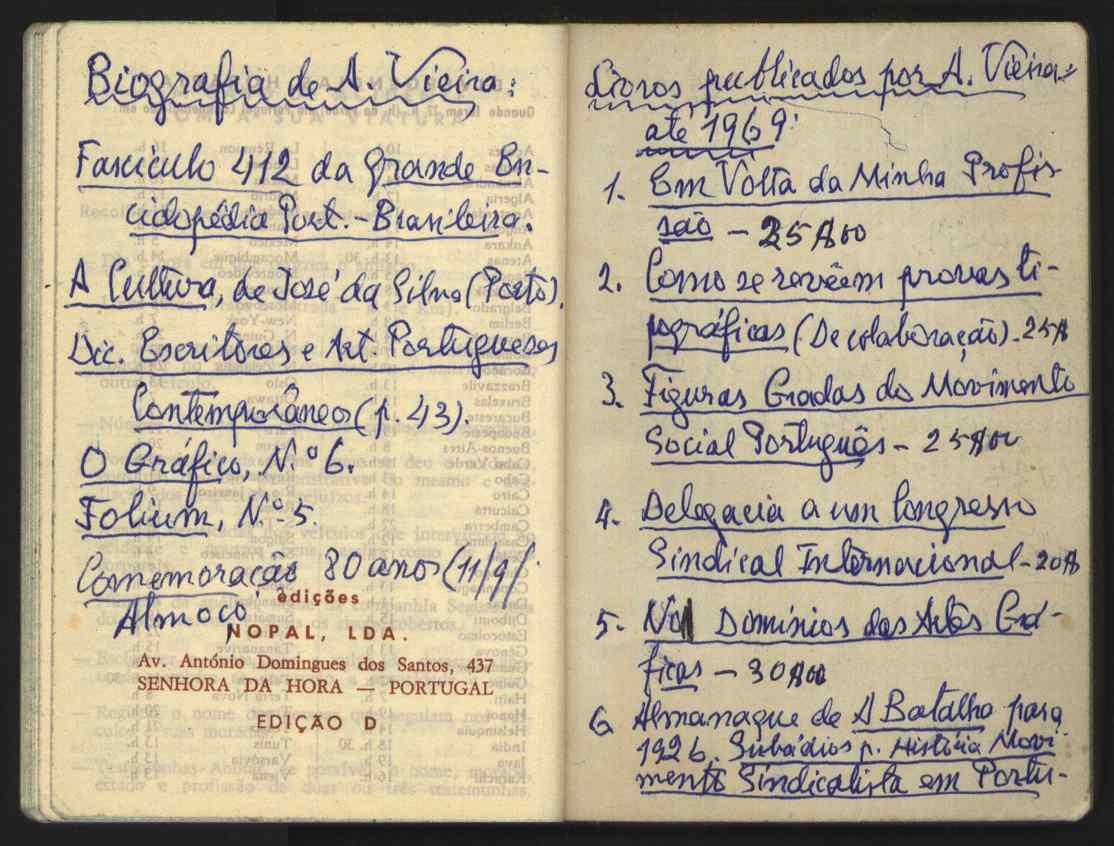 Biografia de A. Vieira:
Fascículo 412 da Grande En-
ciclopédia Port. - Brasileira.
A Cultura, de José da Silva (Porto).
Dic. Escritores e Art. Portugueses
Contemporâneos (p. 43).
O Gráfico, N.º 6.
Folium, N.º 5.
Comemoração 80 anos (11/9/
Almoço
edições
NOPAL, LDA.
Av. António Domingues dos Santos, 437
SENHORA DA HORA — PORTUGAL
EDIÇÃO D
Livros publicados por A. Vieira
até 1969:
1. Em Volta da Minha Profis-
são - 25$00
2. Como se revêem provas ti-
pográficas (De colaboração). 25$
3. Figuras Gradas do Movimento
Social Português - 25$00
4. Delegacia a um Congresso
Sindical Internacional - 20$
5. Nos Domínios das Artes Grá-
ficas - 30$00
6 Almanaque de A Batalha para
1926. Subsídios p. História Movi-
mento Sindicalista em Portu-